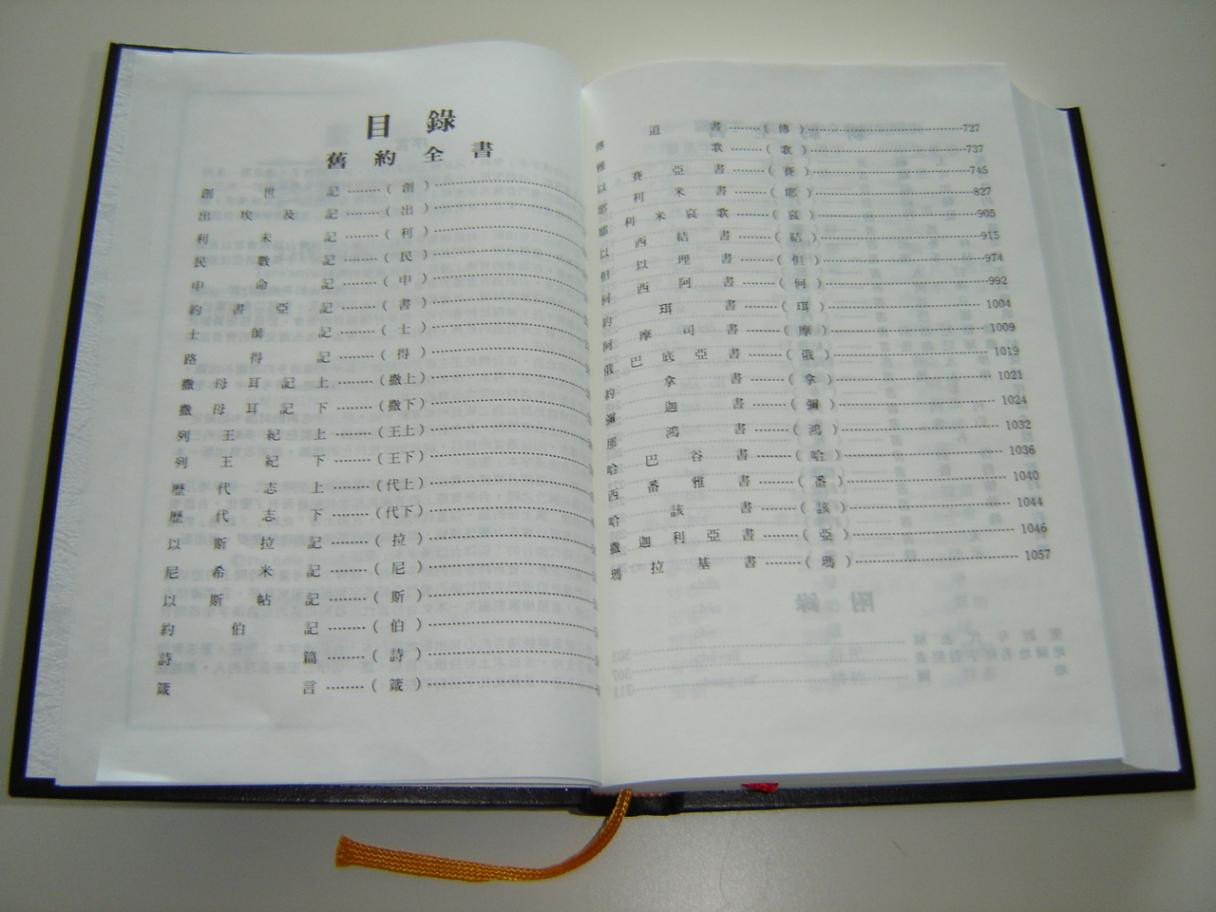 目錄
舊約全書
創世記……(創)
出埃及記……(出)
利未記……(利)
民數記……(民)
申命記……(申)
約書亞記……(書)
士師記……(士)
路得記……(得)
撒母耳記上……(撒上)
撒母耳記下……(撒下)
列王紀上……(王上)
列王紀下……(王下)
歷代志上……(代上)
歷代志下……(代下)
以斯拉記……(拉)
尼希米記……(尼)
以斯帖記……(斯)
約伯記……(伯)
詩篇……(詩)
箴言……(箴)
傳道書……(傳)……727
雅歌……(歌)……737
以賽亞書……(賽)……745
耶利米書……(耶)……827
耶利米哀歌……(哀)……905
以西結書……(結)……915
但以理書……(但)……974
何西阿書……(何)……992
約珥書……(珥)……1004
阿摩司書……(摩)……1009
俄巴底亞書……(俄)……1019
約拿書……(拿)……1021
彌迦書……(彌)……1024
那鴻書……(鴻)……1032
哈巴谷書……(哈)……1036
西番雅書……(番)……1040
哈該書……(該)……1044
撒迦利亞書……(亞)……1046
瑪拉基書……(瑪)……1057
附錄